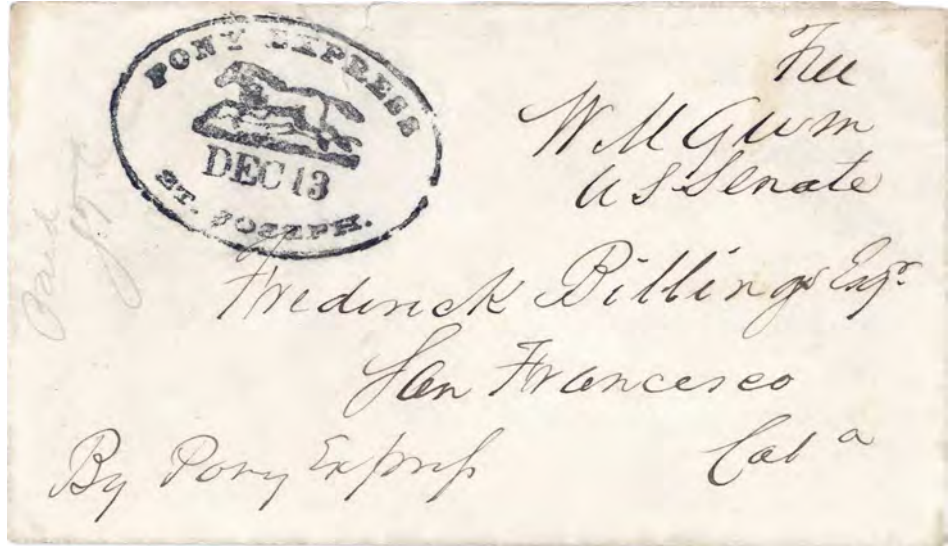 PONY EXPRESS
DEC 13
ST. JOSEPH.
Free
W M Gwin
U S Senate
Frederick Billings Esqr.
San Francisco
Cala
By Pony Express
Paid